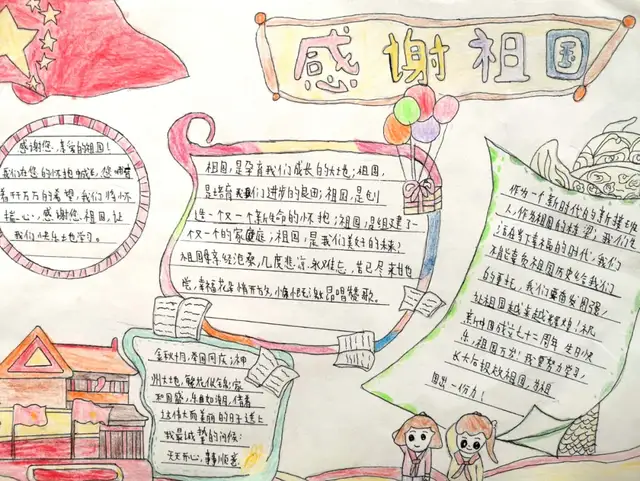 感谢祖国
感谢您,亲爱的祖国!
我们在您的怀抱成长,您哺育
着千千万万的希望,我们将怀
揣
心,感谢您,祖国,让
我们快乐土地学习。
祖国,是孕育我们成长的大地;祖国,
是培育我们进步的良田;祖国,是创
造一个又一个新生命的怀抱;祖国,是组建了一
个又一个的家庭;祖国,是我们美好的未来?
祖国母亲经沧桑,几度悲凉永难忘,苦已尽来甘也
觉,幸福花朵情开万岁,小情
高唱赞歌。
作为一个新时代的新接班
人,作为祖国的栋梁,我们生
活在当下幸福的时代,我们
不能辜负祖国历史给我们
的重托,我们要奋发图强,
让祖国越来越辉煌!祝
新中国成立七十二周年 生日快
乐,祖国万岁!我要努力学习,
长大后报效祖国,为祖
国出一份力!
金秋十月,举国同庆;神
州大地,繁花似锦;家
和国盛,乐曲如潮,借着
这伟大而美丽的日子送上
我最诚挚的问候:
天天开心,事事顺意